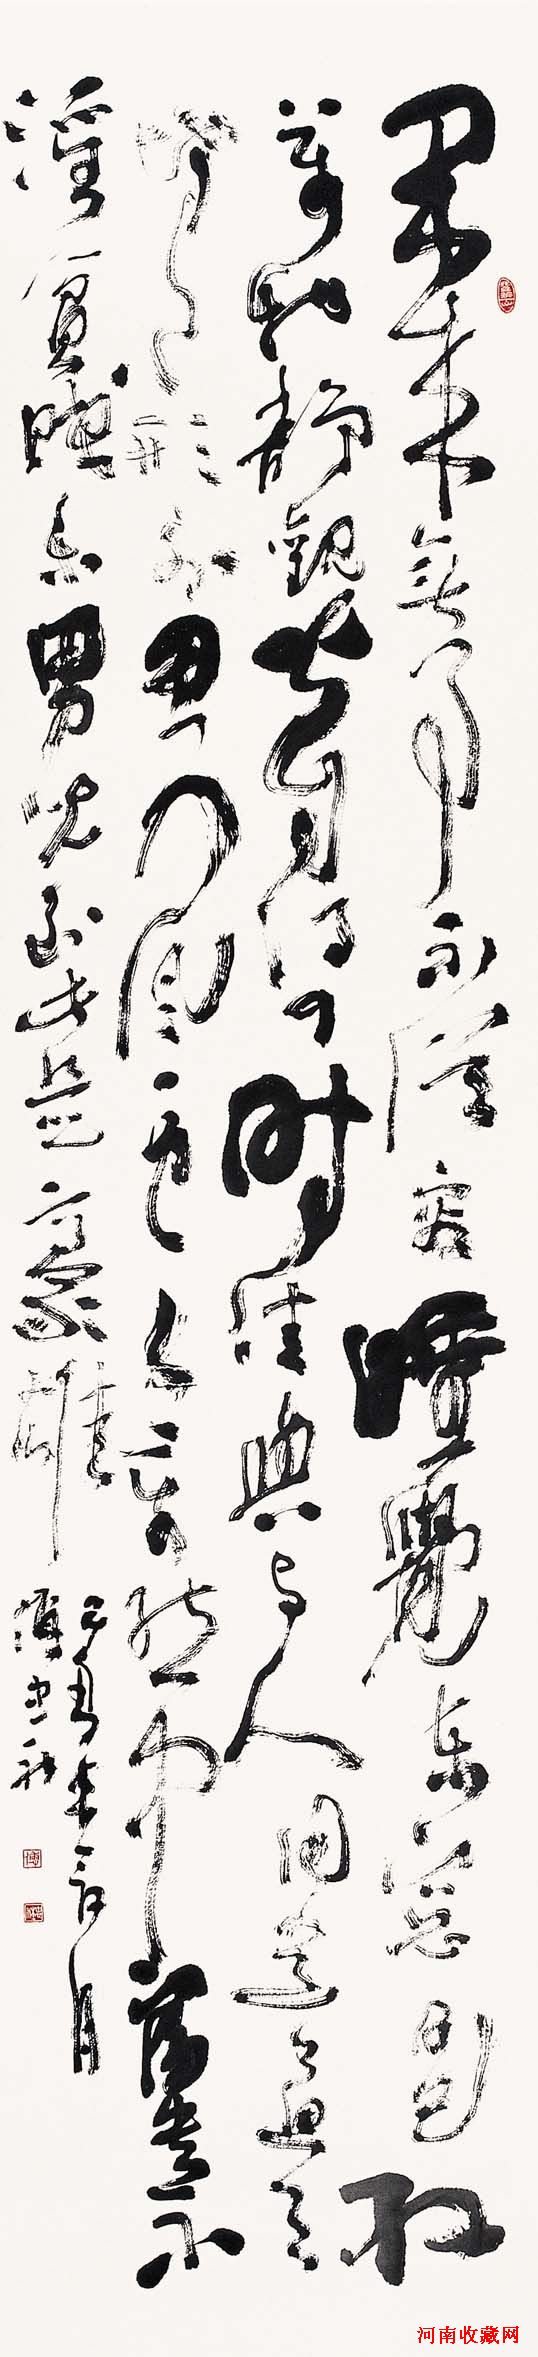 閑来無事不從容睡覺東窗日已紅
萬物静觀皆自得四時佳興與人同道通天
地有形外思入風雲變態中富貴不
淫貧賤樂男兒到此是豪雄
河南收藏网